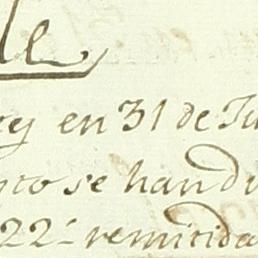 le
ey en 31 de Ju
nto se han di
22 remitida